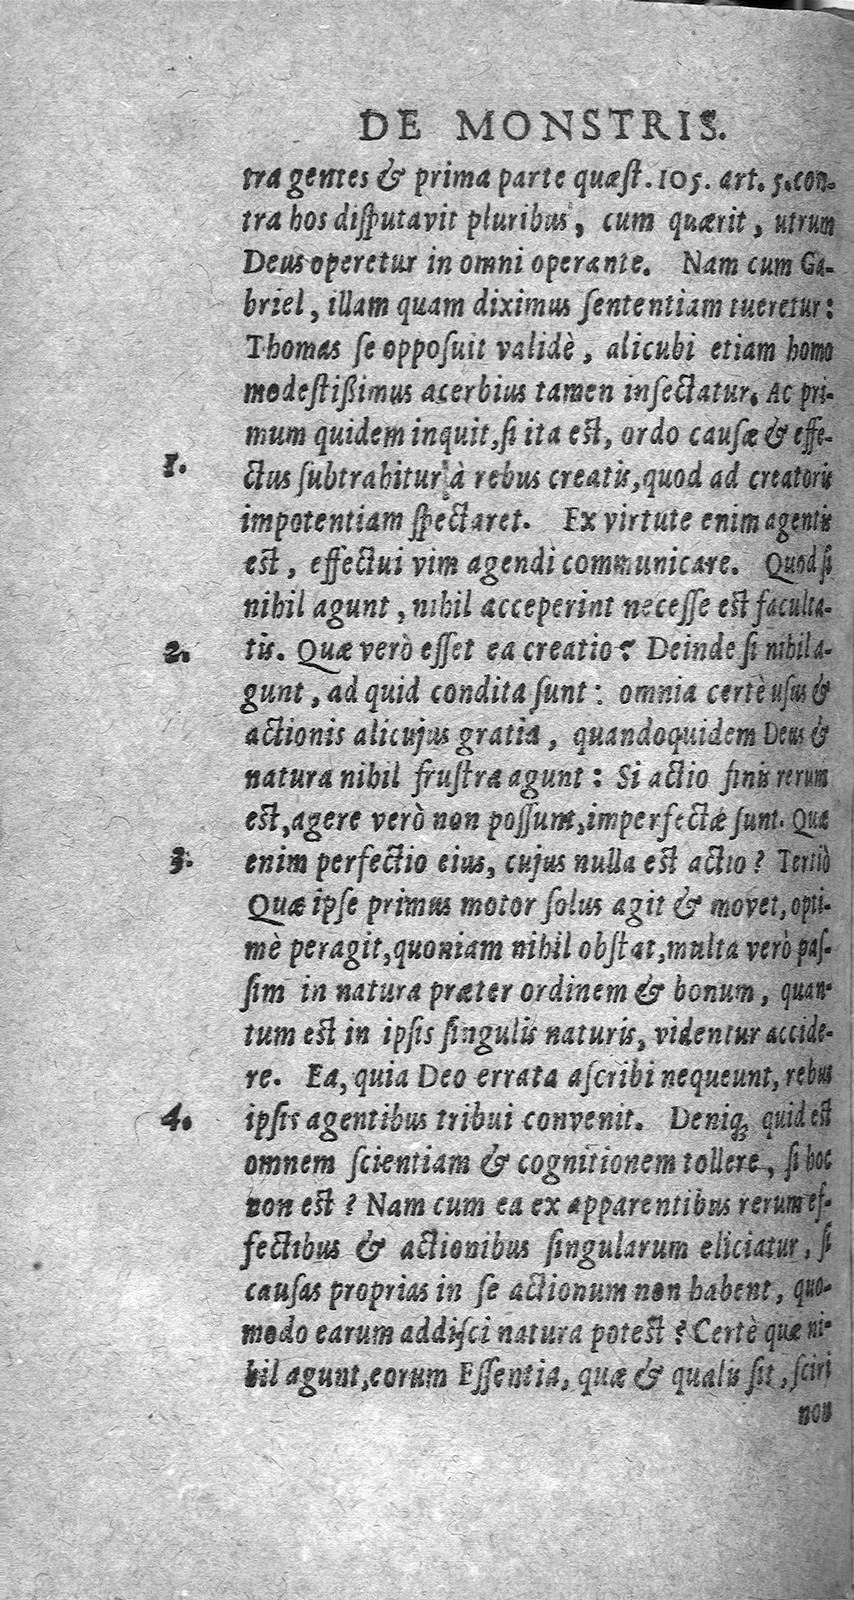 DE MONSTRIS.
tra gentes & prima parte quæſt. 105. art. 5. con-
tra hos diſputavit pluribus, cum quærit, utrum
Deus operetur in omni operante. Nam cum Ga-
briel, illam quam diximus ſententiam tueretur:
Thomas ſe oppoſuit validè, alicubi etiam homo
modeſtißimus acerbius tamen inſectatur. Ac pri-
mum quidem inquit, ſi ita eſt, ordo cauſæ & effe-
1. ctus ſubtrahitur à rebus creatis, quod ad creatoris
impotentiam ſpectaret. Ex virtute enim agentis
eſt, effectui vim agendi communicare. Quod ſi
nihil agunt, nihil acceperint neceſſe eſt faculta-
2. tis. Quæ verò eſſet ea creatio? Deinde ſi nihil a-
gunt, ad quid condita ſunt: omnia certè uſus &
actionis alicujus gratia, quandoquidem Deus &
natura nihil fruſtra agunt: Si actio finis rerum
eſt, agere verò non poſſunt, imperfectæ ſunt. Quæ
3. enim perfectio eius, cujus nulla eſt actio? Tertiò
Quæ ipſe primus motor ſolus agit & movet, opti-
mè peragit, quoniam nihil obſtat, multa verò paſ-
ſim in natura præter ordinem & bonum, quan-
tum eſt in ipſis ſingulis naturis, videntur accide-
re. Ea, quia Deo errata aſcribi nequeunt, rebus
4. ipſis agentibus tribui convenit. Deniq; quid eſt
omnem ſcientiam & cognitionem tollere, ſi hoc
non eſt? Nam cum ea ex apparentibus rerum ef-
fectibus & actionibus ſingularum eliciatur, ſi
cauſas proprias in ſe actionum non habent, quo-
modo earum addiſci natura poteſt? Certè quæ ni-
hil agunt, eorum Eſſentia, quæ & qualis ſit, ſciri
non